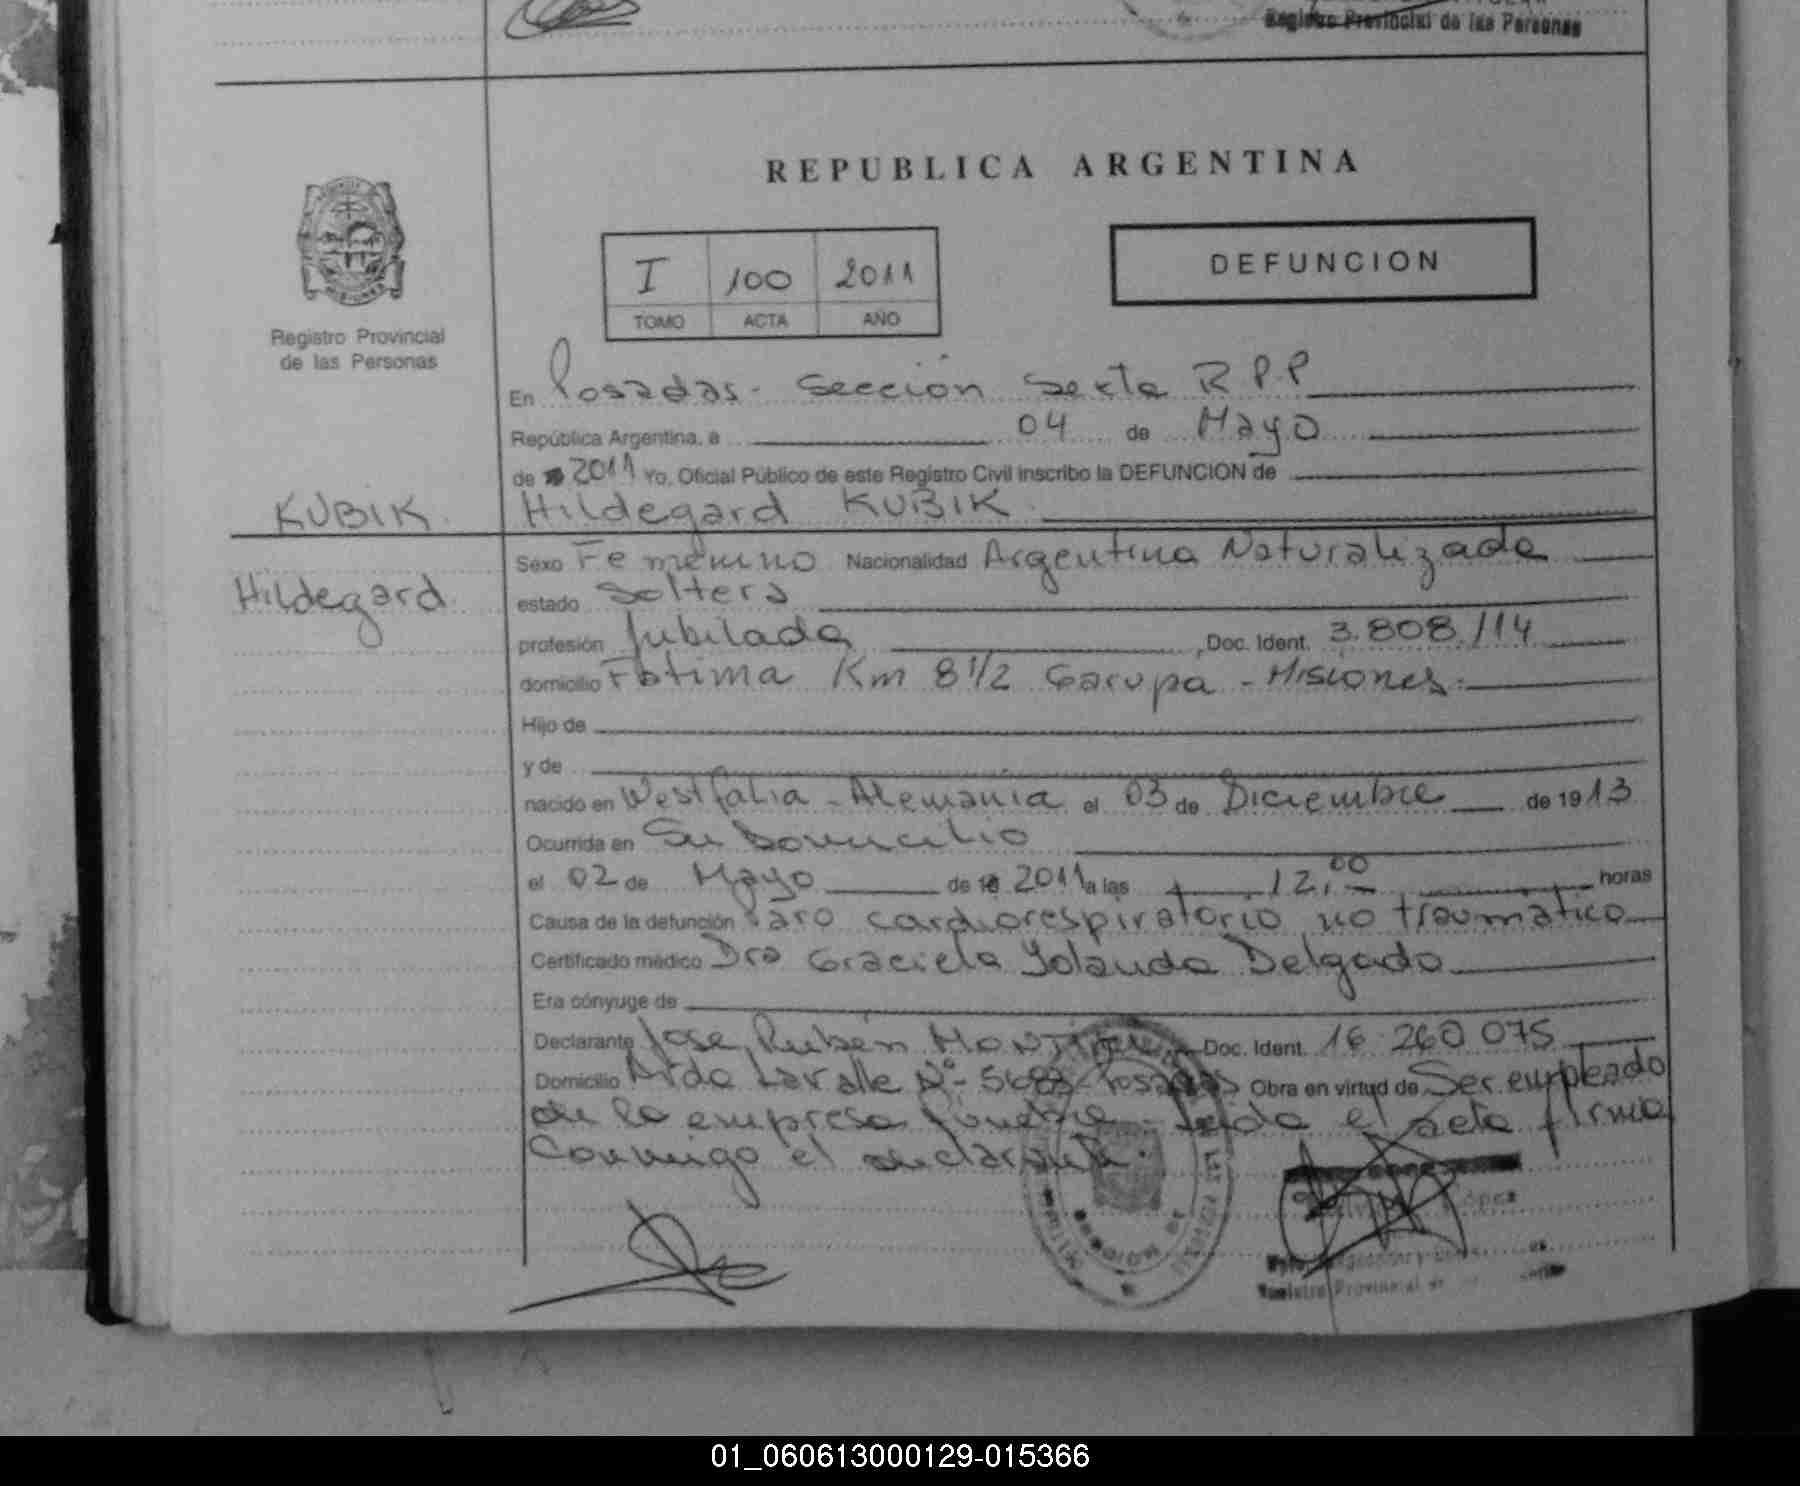 Registro Provincial de las Personas
REPUBLICA ARGENTINA
I 100 2011
TOMO ACTA AÑO
DEFUNCION
MISIONES
Registro Provincial
de las Personas
En Posadas - Sección Sexta R.P.P
República Argentina, a 04 de Mayo
de 2011 Yo, Oficial Público de este Registro Civil inscribo la DEFUNCION de
KUBIK Hildegard KUBIK
Hildegard
Sexo Femenino Nacionalidad Argentina Naturalizada
estado Soltera
profesión Jubilada Doc. Ident. 3.808.114
domicilio Fatima Km 8 1/2 Garupa - Misiones
Hijo de
y de
nacido en Westfalia - Alemania el 03 de Diciembre de 1913
Ocurrida en Su Domicilio
el 02 de Mayo de 2011 a las 12,00 horas
Causa de la defunción Paro cardiorespiratorio no traumatico
Certificado médico Dra Graciela Yolanda Delgado
Era cónyuge de
Declarante Jose Rubén Doc. Ident. 16 260 075
Domicilio Avda Lavalle Nº 5683 - Posadas Obra en virtud de Ser empleado
de la empresa funebre - leida el acta firma
Conmigo el declarante.
Registro Provincial de
01_060613000129-015366